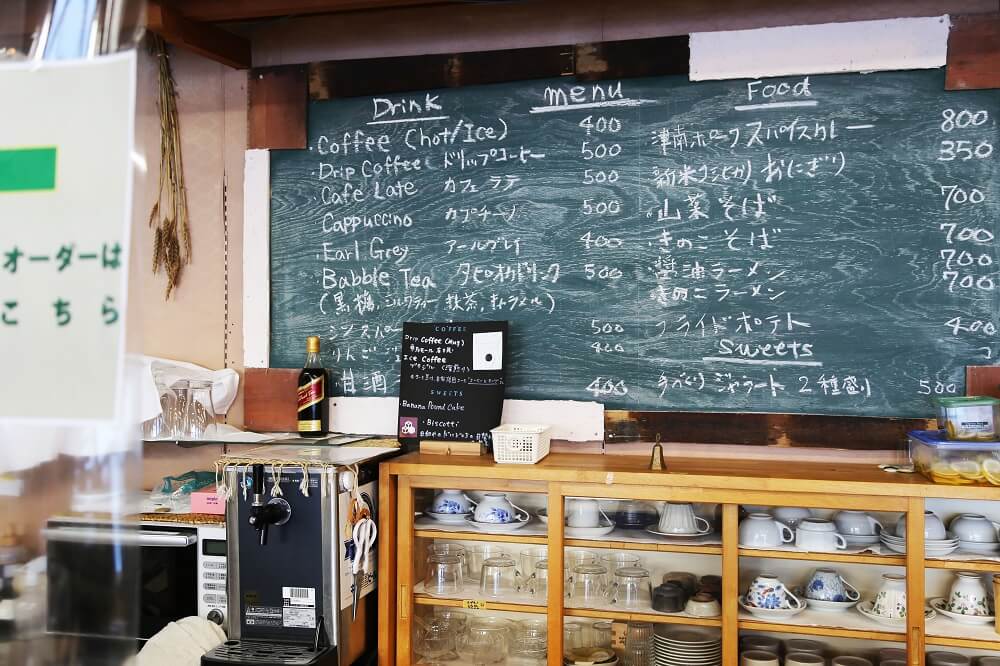 オーダーは
こちら
menu
Drink
Coffee (hot/Ice) 400
・Drip Coffee ドリップコーヒー 500
・Cafe Late カフェ ラテ 500
Cappuccino カプチーノ 500
・Earl Grey アールグレイ 400
・Babble Tea タピオカドリンク 500
(黒糖,ミルクティー,抹茶,キャラメル)
500
400
甘酒 400
Food
津南ポークスパイスカレー 800
新米コシヒカリ おにぎり 350
・山菜そば 700
・きのこそば 700
醤油ラーメン 700
きのこラーメン 700
フライドポテト 400
Sweets
手づくりジェラート 2種盛り 500
COFFEE
Drip Coffee (Hot)
Ice Coffee
SWEETS
・Banana Pound Cake
・Biscotti